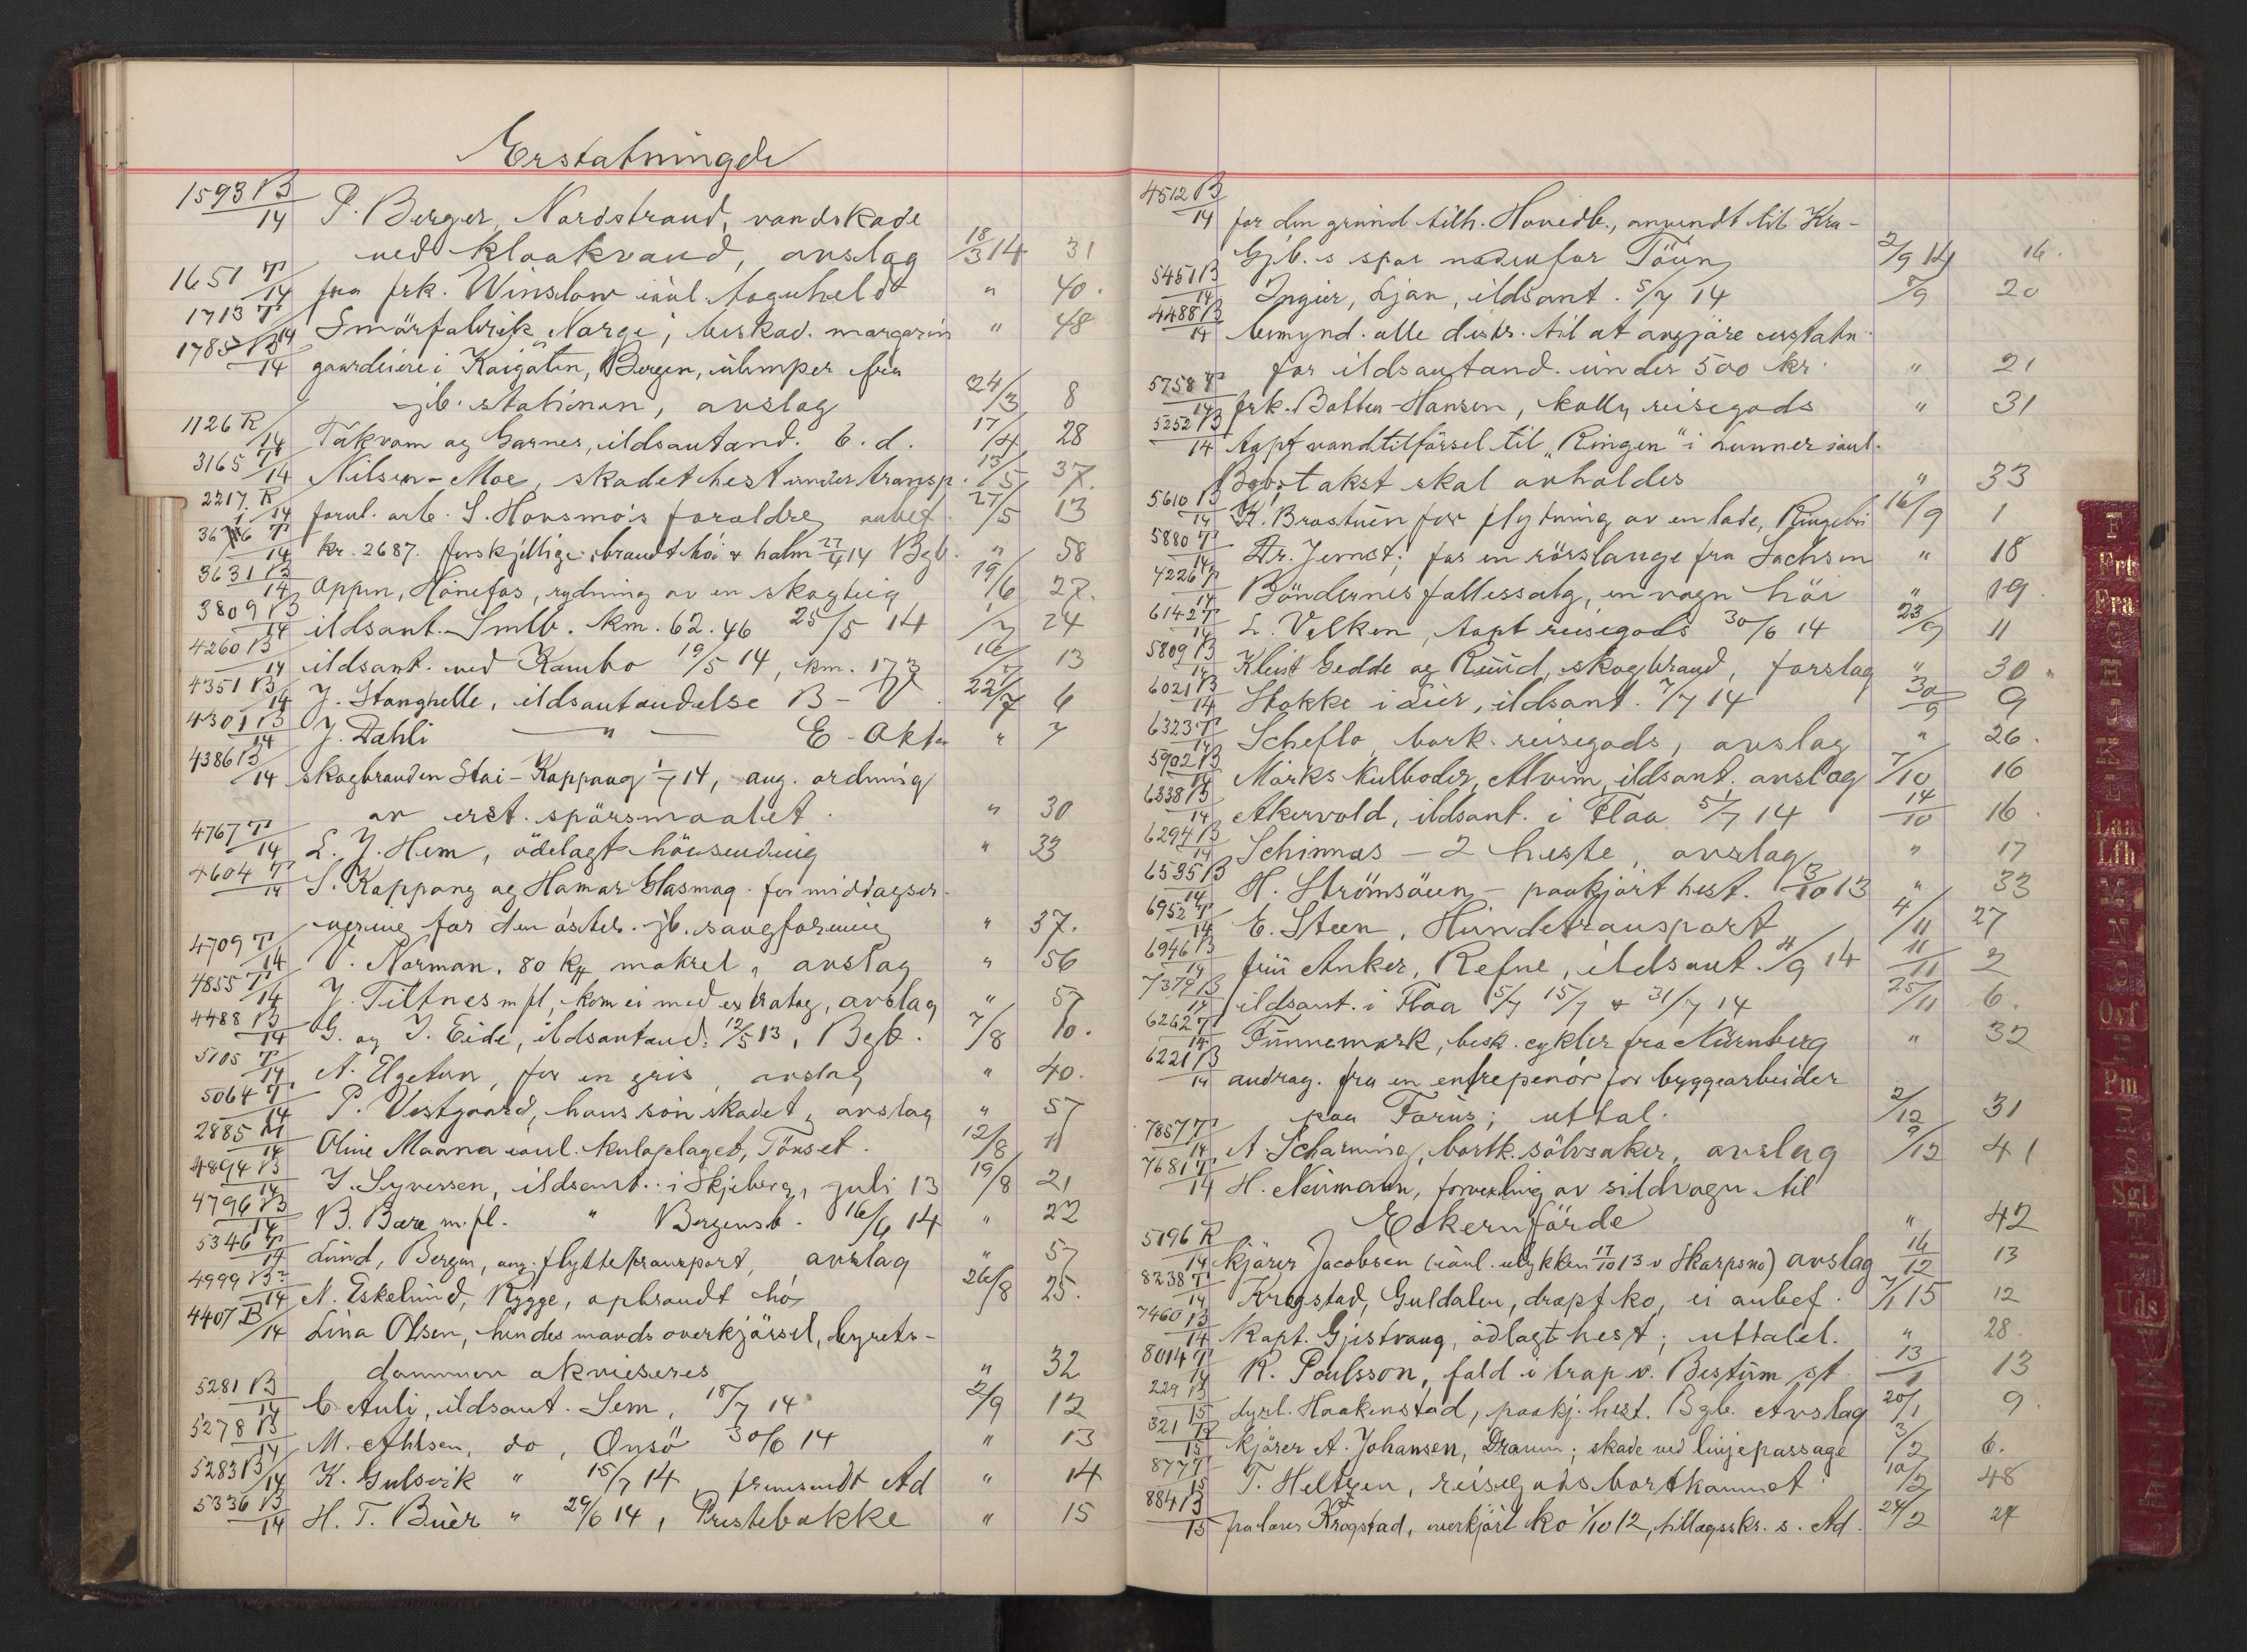 Erstatninger
1593 B/14 P. Berger, Nordstrand, vandskade
ved kloakvand, avslag 18/3 14 31
1651 T/14 fra frk. Winslow iånl. toguheld " 40.
1713 T/14 Smörfabrik "Norge", beskad. margarin " 48
1785 B/14 gaardeiere i Kaigaten, Bergen, ulemper fra
jb. stationen, avslag 24/3 8
1126 R/14 Takvam og Garnes, ildsantænd. E. d. 17/4 28
3165 T/14 Nilsen-Moe, skadet hest under transp. 13/5 37.
2217 R/14 forul. arb. S. Hovsmo's forældre, anbef. 27/5 13
36 6 T/14 kr. 2687. forskjellige: brændt höi & halm 27/4 14 Bgb. " 58
3631 B/14 Oppen, Hönefos, rydning av en skogteig 19/6 27.
3809 B/14 ildsant. Smlb. km. 62.46 25/5 14 1/7 24
4260 B/14 ildsant. ved Kambo 19/5 14, km. 173 16/7 13
4351 B/14 J. Stanghelle, ildsantændelse B-V. 22/7 6
4301 B/14 J. Dahli — " — E - Okta " 7
4386 B/14 skogbranden Stai-Koppang 1/7 14, ang. ordning
av erst. spörsmaalet. " 30
4767 T/14 L. J. Hem, ödelagt hösending " 33
4604 T/14 S. Koppang og Hamar Glasmag. for middagsser-
vering for den österr. jb. sangforening " 37.
4709 T/14 V. Norman, 80 kg makrel, avslag " 56
4855 T/14 J. Tiltnes m fl, kom ei med extratog, avslag " 57
4488 B/14 G. og J. Eide, ildsantænd. 12/5 13, Bgb. 7/8 10.
5105 T/14 A. Elgeton, for en gris, avslag " 40.
5064 T/14 P. Vestgaard, hans sön skadet, avslag " 57
2885 M/14 Oline Maana iånl. kulaplaget, Tönset. 12/8 11
4894 B/14 J. Syversen, ildsant. i Skjeberg, juli 13 19/8 21
4796 B/14 B. Bære m. fl. " Bergensb. 16/6 14 " 22
5346 T/14 Lund, Bergen, ang. flyttetransport, avslag " 57
4999 B/14 N. Eskelund, Rygge, opbrændt hö, 26/8 25.
4407 B/14 Lina Olsen, hendes mands overkjörsel, byrets-
dommen akvieseres " 32
5281 B/14 C. Auli, ildsant. Sem, 18/7 14 2/9 12
5278 B/14 M. Ahlsen, do, Onsö 30/6 14 " 13
5283 B/14 K. Gulsvik " 15/7 14, fremsendt Ad " 14
5336 B/14 H. T. Buer " 29/6 14, Prestebakke " 15
4512 B/14 for den grund tilh. Hovedb., anvendt til Kra-
Gjb.s spor nedenfor Töien 2/9 14 16.
5451 B/14 Ingier, Ljan, ildsant. 5/7 14 8/9 20
4488 B/14 bemynd. alle distr. til at avgjöre erstatn.
for ildsantænd. under 500 kr. " 21
5758 T/14 frk. Botten-Hansen, kolly reisegods " 31
5252 B/14 tapt vandtilförsel til "Ringen" i Lunner iånl.
Bgb; takst skal avholdes " 33
5610 B/14 K. Brostuen for flytning av en lade, Ringebu 16/9 1
5880 T/14 Dr. Jernet; for en rörslange fra Sachsen " 18
4226 T/14 Böndernes fællessalg, en vogn höi " 19.
6142 T/14 L. Velken, tapt reisegods 30/6 14 23/9 11
5809 B/14 Kleist Gedde og Ruud, skogbrand, forslag " 30
6021 B/14 Stokke i Lier, ildsant. 7/7 14 30/9 9
6323 T/14 Scheflo, bortk. reisegods, avslag " 26.
5902 B/14 Mörks kulboder, Alvim, ildsant. avslag 7/10 16
6338 B/14 Akervold, ildsant. i Flaa 5/7 14 14/10 16.
6294 B/14 Schinnas - 2 heste, avslag " 17
6535 B/14 H. Strömsöen - paakjört hest. 13/10 13 " 33
6952 T/14 E. Steen, Hundetransport 4/11 27
6946 B/14 frü Anker, Refne, ildsant. 4/9 14 11/11 2
7379 B/14 ildsant. i Flaa 5/7 15/7 & 31/7 14 25/11 6.
6262 T/14 Funnemark, besk. cykler fra Nürnberg " 32
6221 B/14 andrag. fra en entrepenör for byggearbeider
paa Forus; uttal. 2/12 31
7857 T/14 A Scharning, bortk. sölvsaker, avslag 9/12 41
7681 T/14 H. Neumann, forvexling av sildvogn til
Eckernförde " 42
5196 R/14 kjörer Jacobsen (iånl. ulykken 17/10 13 v Skarpsno) avslag 16/12 13
8238 T/14 Krogstad, Guldalen, dræpt ko, ei anbef. 7/1 15 12
7460 B/14 Kapt. Gjestvang, ödlagt hest; uttalel. " 28.
8014 T/14 R. Poulsson, fald i trap. v. Bestum st 13/1 13
229 B/15 dyrl. Haakenstad, paakj. hest. Bgb. Avslag 20/1 9.
321 B/15 kjörer A. Johansen, Dramm; skade ved linjepassage 3/2 6.
877 T/15 T. Heltzen, reisegods bortkommet. 10/2 48
884 B/15 Krogstad, overkjört ko 1/10 12, tillægsskr. s. Ad. 24/2 27
F
Frb
Fra
G
H
J
K
L
Lan
Lfh
M
N
O
Osf
P
Pm
R
S
Sgl
T
U
Uds